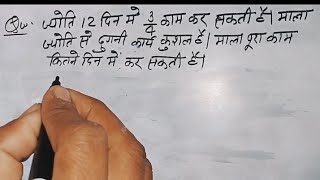 Qu. ज्योति 12 दिन में 3/4 काम कर सकती है। माला
ज्योति से दुगनी कार्य कुशल है। माला पूरा काम
कितने दिन में कर सकती है।